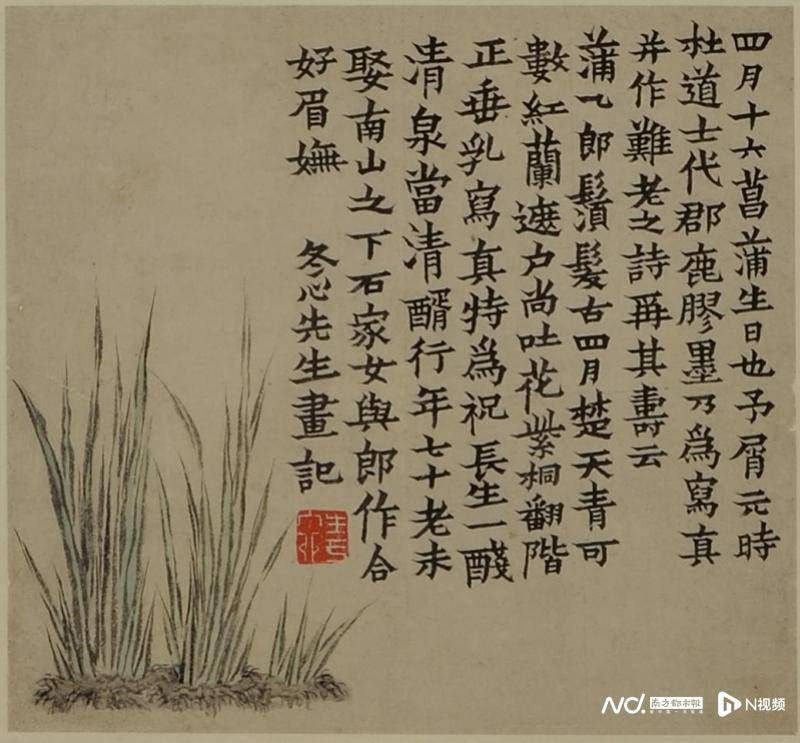 四月十六菖蒲生日也予屑元時
杜道士代郡鹿膠墨乃為寫真
并作難老之詩稱其壽云
蒲九郎鬚髮古四月楚天青可
數紅蘭遮户尚吐花紫桐翻階
正垂乳寫真特為祝長生一醆
清泉當清醑行年七十老未
娶南山之下石家女與郎作合
好眉嫵
冬心先生畫記
南方都市報
N视频